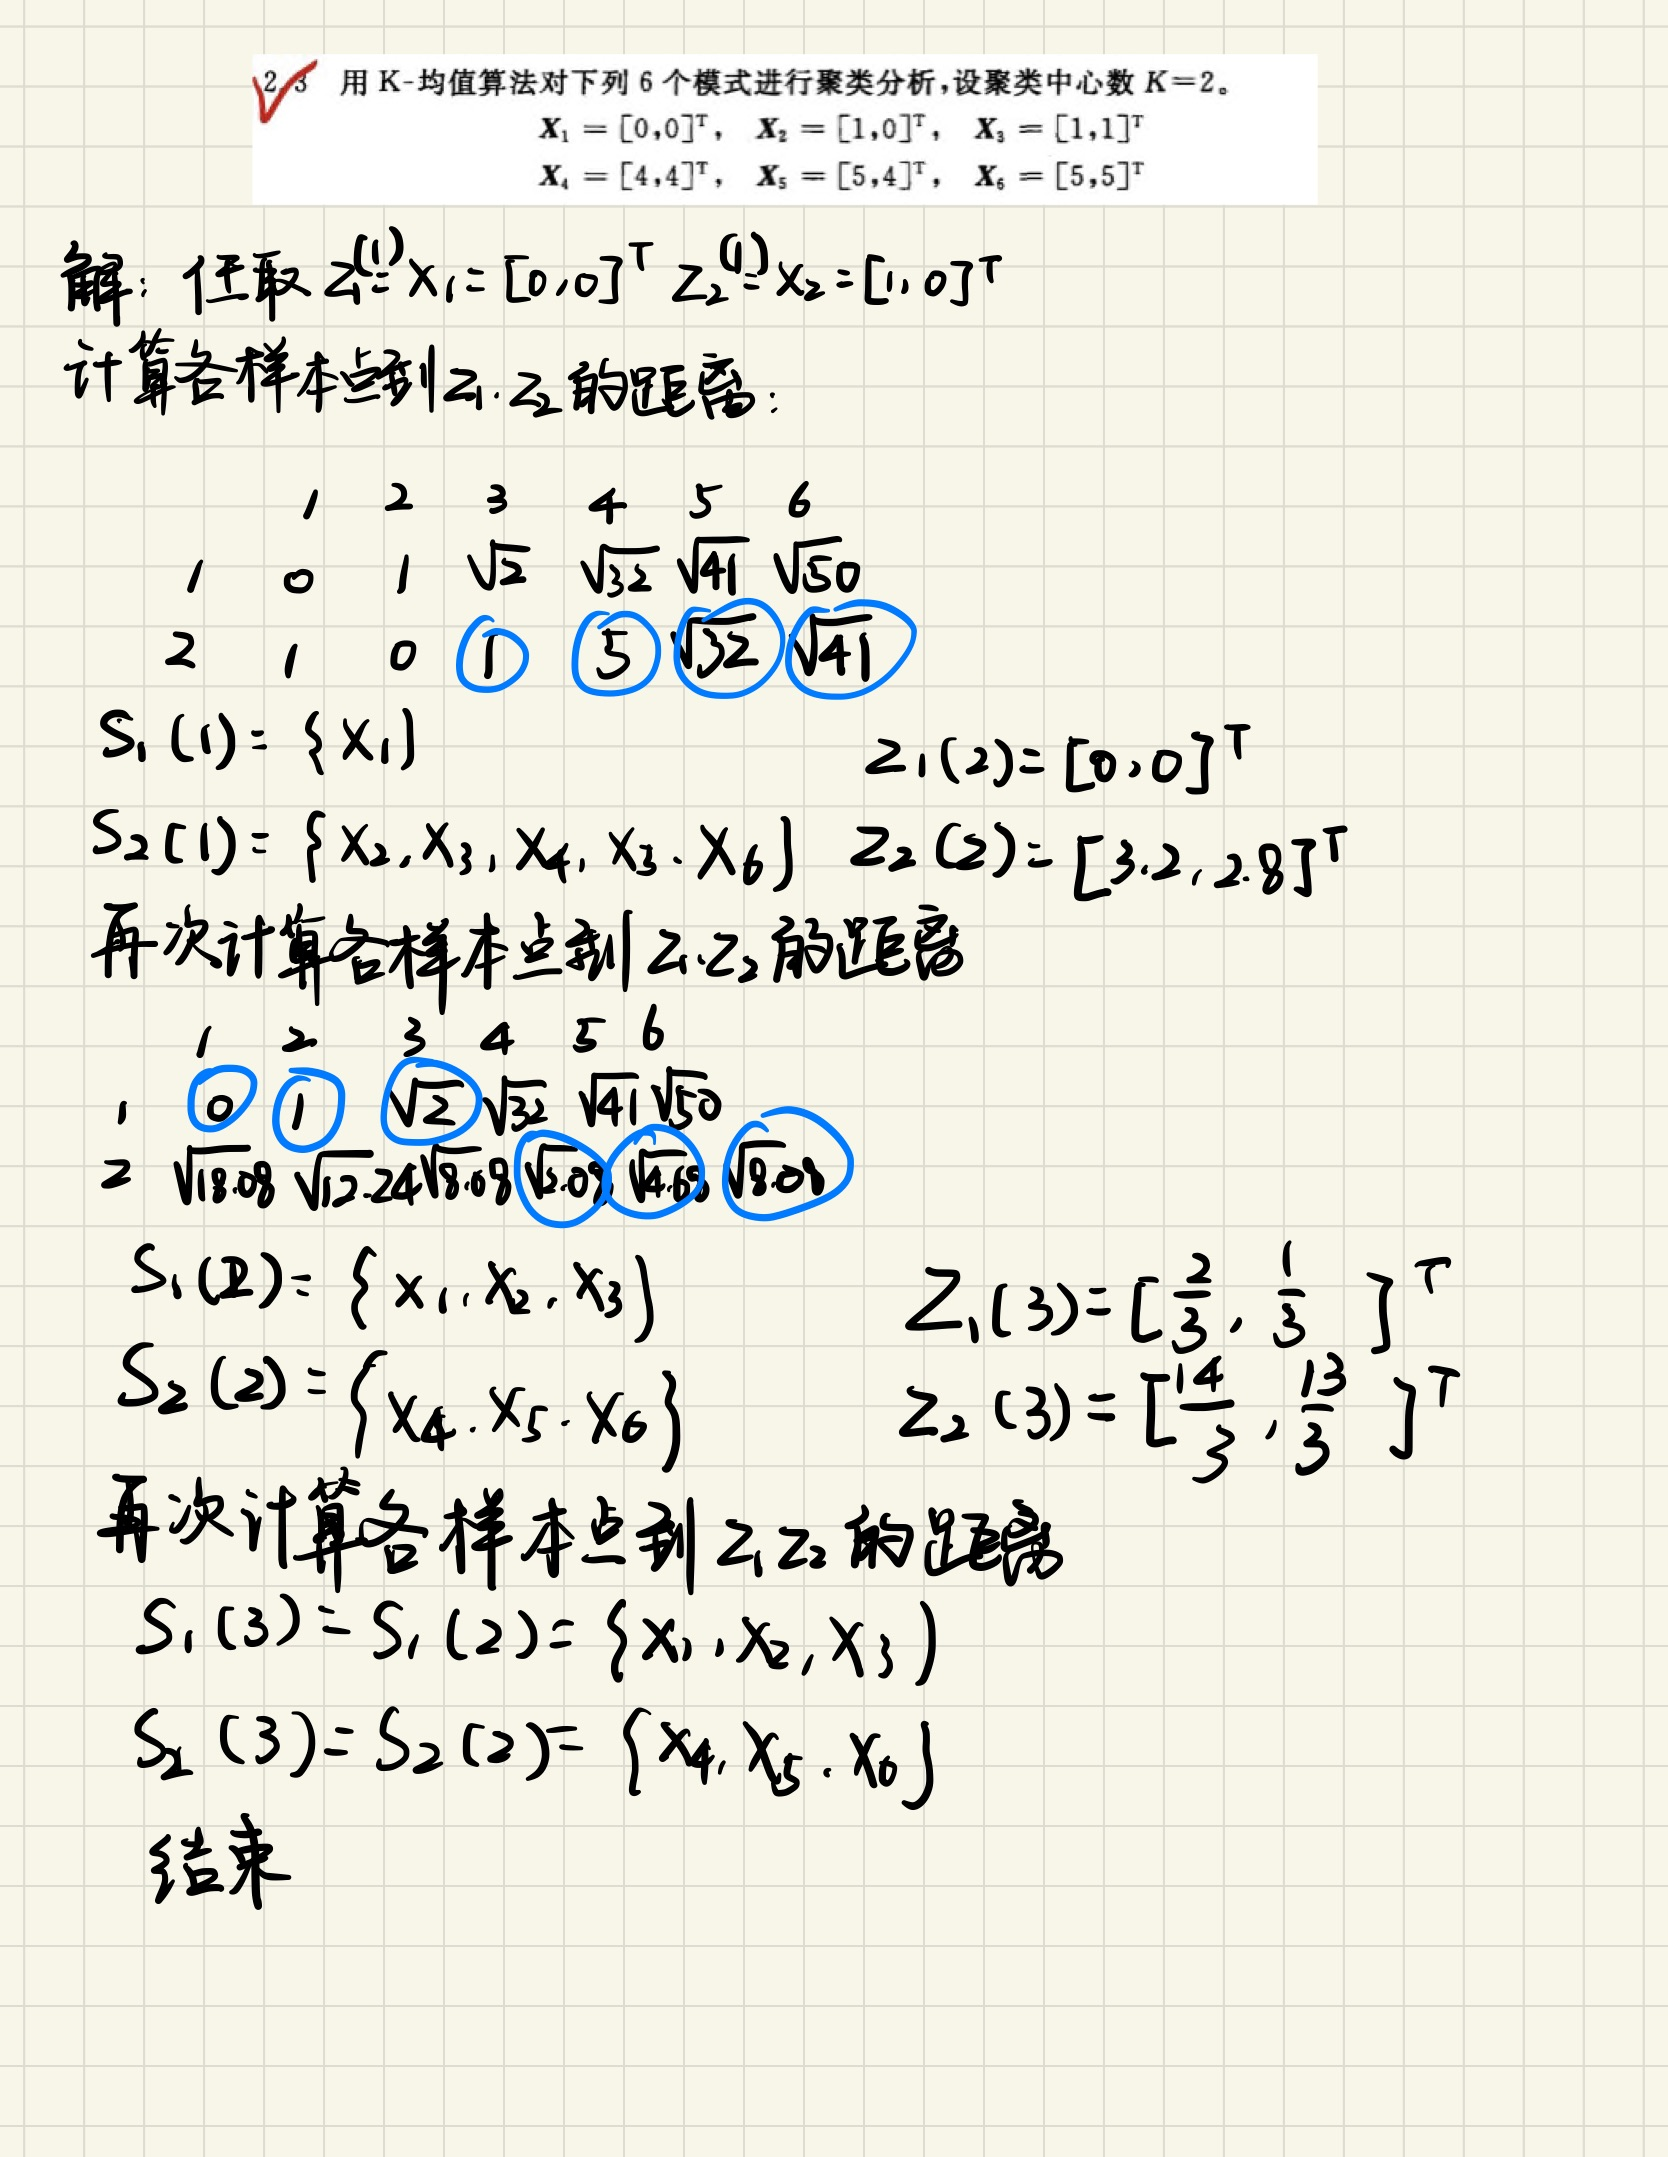 2.3 用 K-均值算法对下列 6 个模式进行聚类分析,设聚类中心数 K=2。
X₁ = [0,0]ᵀ, X₂ = [1,0]ᵀ, X₃ = [1,1]ᵀ
X₄ = [4,4]ᵀ, X₅ = [5,4]ᵀ, X₆ = [5,5]ᵀ
解: 任取 Z₁⁽¹⁾=X₁=[0,0]ᵀ Z₂⁽¹⁾=X₂=[1,0]ᵀ
计算各样本点到Z₁.Z₂的距离:
1 2 3 4 5 6
1 0 1 √2 √32 √41 √50
2 1 0 1 5 √32 √41
S₁(1)={X₁} Z₁(2)=[0,0]ᵀ
S₂(1)={X₂,X₃,X₄,X₅.X₆} Z₂(2)=[3.2,2.8]ᵀ
再次计算各样本点到Z₁.Z₂的距离
1 2 3 4 5 6
1 0 1 √2 √32 √41 √50
2 √18.08 √12.24 √8.08 √2.08 √4.68 √8.08
S₁(2)={X₁,X₂,X₃} Z₁(3)=[2/3,1/3]ᵀ
S₂(2)={X₄.X₅.X₆} Z₂(3)=[14/3,13/3]ᵀ
再次计算各样本点到Z₁Z₂的距离
S₁(3)=S₁(2)={X₁,X₂,X₃}
S₂(3)=S₂(2)={X₄,X₅.X₆}
结束